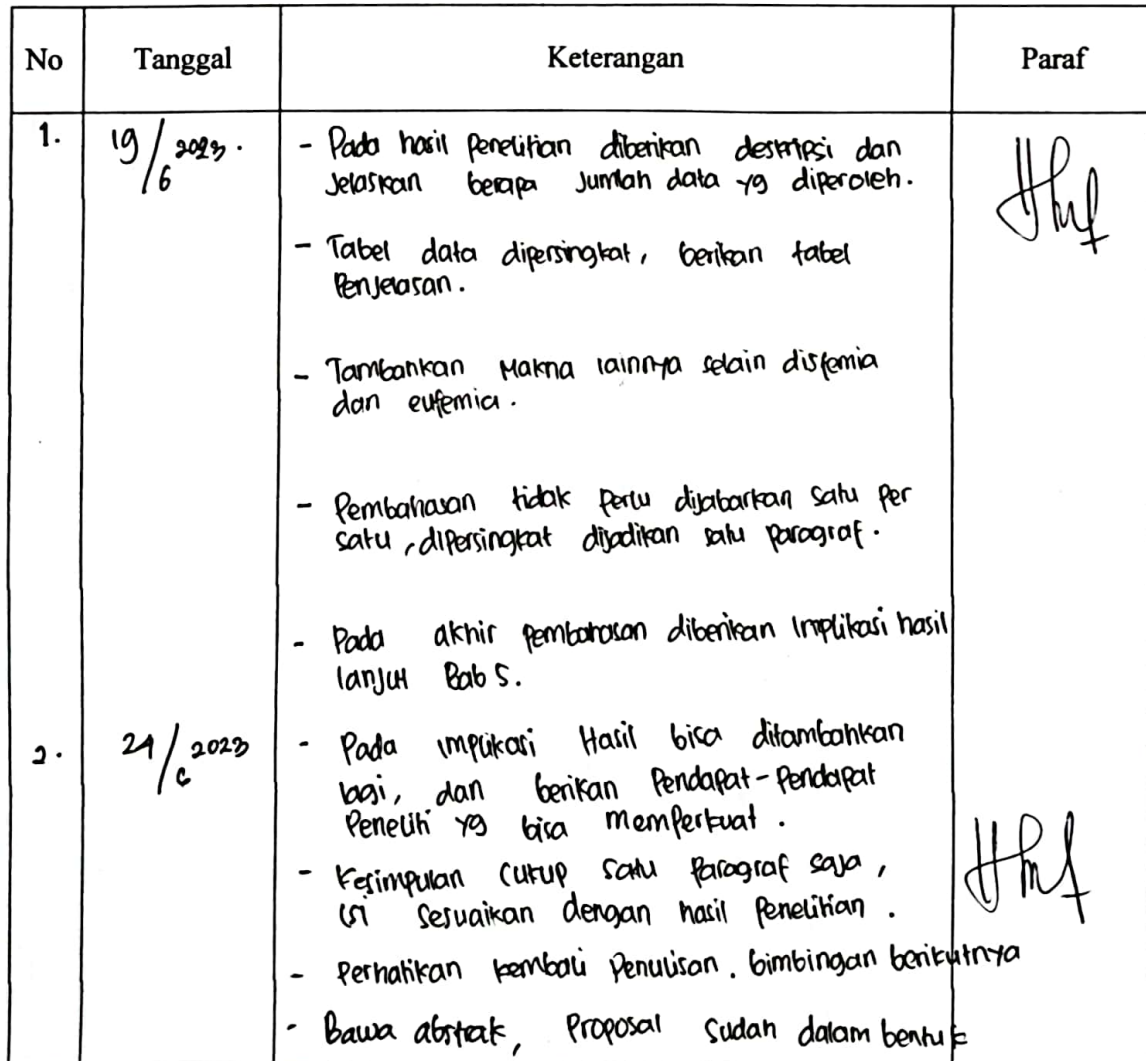 No Tanggal Keterangan Paraf
1. 19/6 2023. - Pada hasil penelitian diberikan deskripsi dan
jelaskan berapa jumlah data yg diperoleh.
- Tabel data dipersingkat, berikan tabel
penjelasan.
- Tambahkan Makna lainnya selain disfemia
dan eufemia.
- Pembahasan tidak perlu dijabarkan satu per
satu, dipersingkat dijadikan satu paragraf.
- Pada akhir pembahasan diberikan implikasi hasil
lanjut Bab 5.
2. 2023 - Pada implikasi Hasil bisa ditambahkan
lagi, dan berikan Pendapat-Pendapat
Peneliti yg bisa memperkuat.
- Kesimpulan cukup satu Paragraf saja,
isi sesuaikan dengan hasil penelitian.
- Perhatikan kembali Penulisan. bimbingan berikutnya
- Bawa abstrak, Proposal sudah dalam bentuk